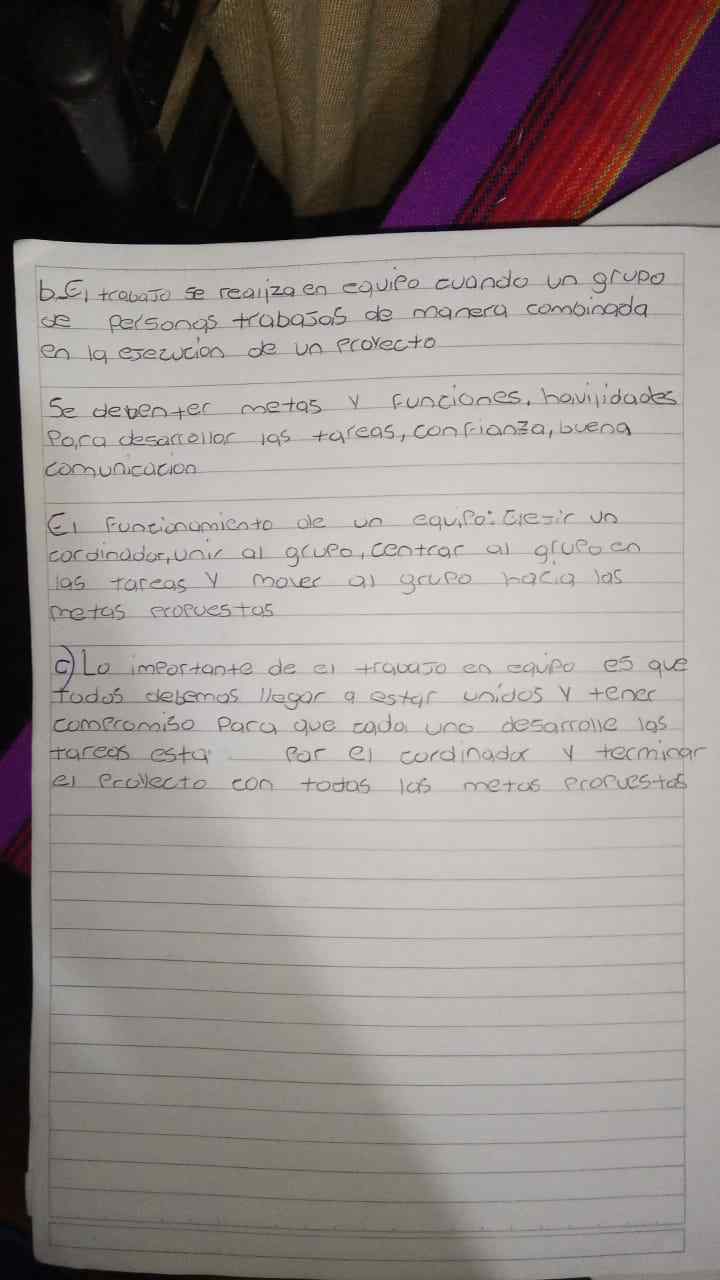 b. El trabajo se realiza en equipo cuando un grupo
de personas trabajas de manera combinada
en la ejecucion de un proyecto
Se deben ter metas y funciones, havilidades
para desarrollar las tareas, confianza, buena
comunicacion
El funcionamiento de un equipo: Elejir un
cordinador, unir al grupo, centrar al grupo en
las tareas y mover al grupo hacia las
metas propuestas
c) Lo importante de el travajo en equipo es que
todos debemos llegar a estar unidos y tener
compromiso para que cada uno desarrolle las
tareas esta por el cordinador y terminar
el proyecto con todas las metas propuestas